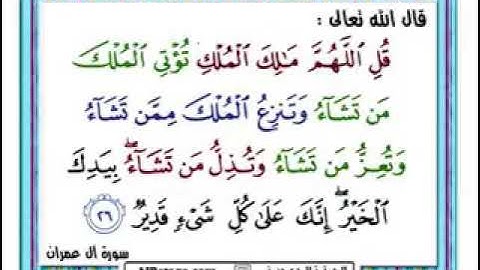 قال الله تعالى :
قُلِ ٱللَّهُمَّ مَٰلِكَ ٱلْمُلْكِ تُؤْتِى ٱلْمُلْكَ
مَن تَشَآءُ وَتَنزِعُ ٱلْمُلْكَ مِمَّن تَشَآءُ
وَتُعِزُّ مَن تَشَآءُ وَتُذِلُّ مَن تَشَآءُۖ بِيَدِكَ
ٱلْخَيْرُۖ إِنَّكَ عَلَىٰ كُلِّ شَىْءٍ قَدِيرٌ ٢٦
سورة ال عمران